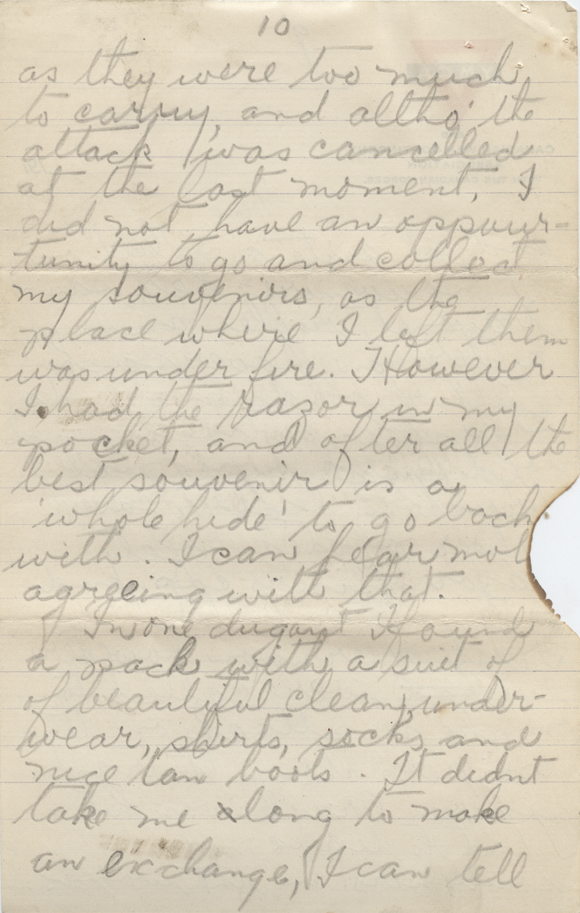 10
as they were too much
to carry, and altho' the
attack was cancelled
at the last moment, I
did not have an oppour-
tunity to go and collect
my souvenirs, as the
place where I left them
was under fire. However
I had the razor in my
pocket, and after all the
best souvenir is a
'whole hide' to go back
with. I can hear mol
agreeing with that.
In one dugout I found
a pack with a suit of
of beautiful clean, under-
wear, shirts, socks and
nice tan boots. It didnt
take me along to make
an exchange, I can tell